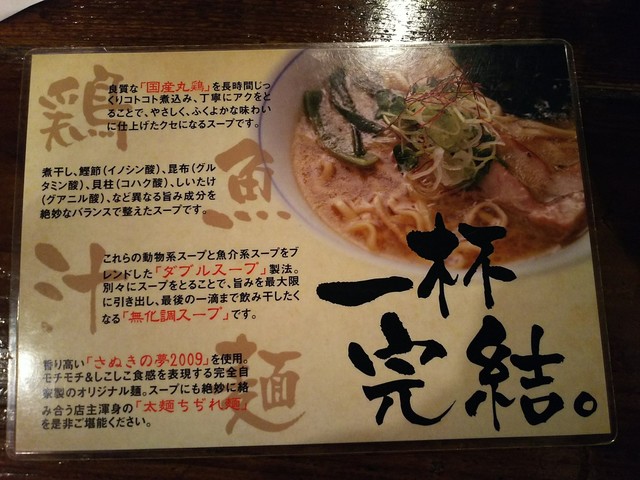 鶏
良質な「国産丸鶏」を長時間じっ
くりコトコト煮込み、丁寧にアクをと
ることで、やさしく、ふくよかな味わい
に仕上げたクセになるスープです。
魚
煮干し、鰹節(イノシン酸)、昆布(グル
タミン酸)、貝柱(コハク酸)、しいたけ
(グアニル酸)、など異なる旨み成分を
絶妙なバランスで整えたスープです。
汁
これらの動物系スープと魚介系スープをブ
レンドした「ダブルスープ」製法。
別々にスープをとることで、旨みを最大限
に引き出し、最後の一滴まで飲み干したく
なる「無化調スープ」です。
麺
香り高い「さぬきの夢2009」を使用。
モチモチ&しこしこ食感を表現する完全自
家製のオリジナル麺。スープにも絶妙に絡
み合う店主渾身の「太麺ちぢれ麺」
を是非ご堪能ください。
一杯
完結。